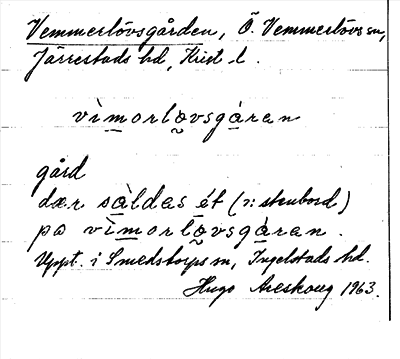 Vemmerlövsgården, Ö. Vemmerlövs sn,
Järrestads hd, Krist. l.
vìmorlo̰vsgàran
gård
dær sàldas ét (ɔ: stenbord)
pa vìmorlo̰vsgàran.
Uppt. i Smedstorps sn, Ingelstads hd.
Hugo Areskoug 1963.